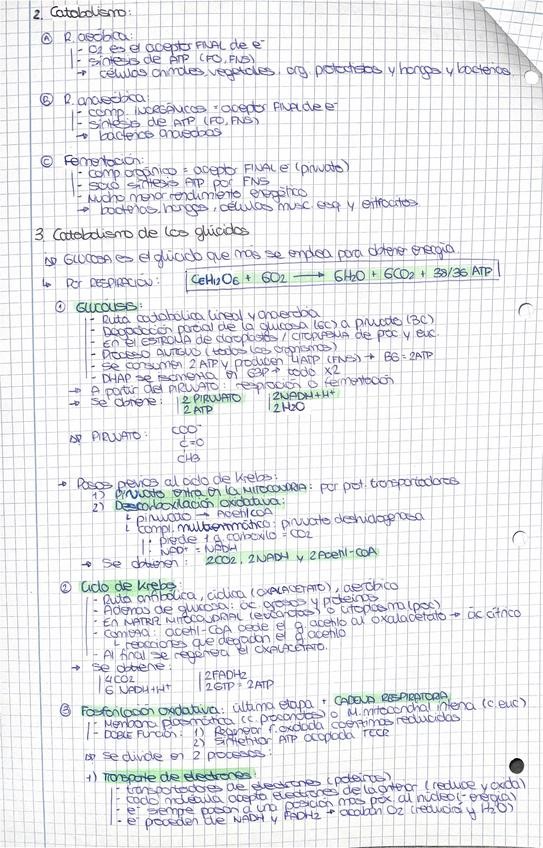 2. Catabolismo:
Ⓐ R. aeróbica:
- O2 es el aceptor FINAL de e-
- síntesis de ATP (FO, FNS)
→ células animales, vegetales, org. protoctistas y hongos y bacterias
Ⓑ R. anaeróbica:
- comp. INORGÁNICOS = aceptor FINAL de e-
- síntesis de ATP (FO, FNS)
→ bacterias anaerobias
Ⓒ Fermentación:
- comp orgánico = aceptor FINAL e- (piruvato)
- solo síntesis ATP por FNS
- Mucho menor rendimiento energético
→ bacterias, hongos, células musc. esq y eritrocitos
3. Catabolismo de los glúcidos
GLUCOSA es el glúcido que más se emplea para obtener energía.
↳ Por RESPIRACIÓN: C6H12O6 + 6O2 → 6H2O + 6CO2 + 38/36 ATP
① GLUCÓLISIS:
- Ruta catabólica lineal y anaerobia
- Degradación parcial de la glucosa (6C) a piruvato (3C)
- En el ESTROMA de cloroplastos / citoplasma de proc y euc.
- Proceso ANTIGUO (todos los organismos)
- Se consumen 2ATP y producen 4ATP (FNS) → BG = 2ATP
- DHAP se isomeriza en G3P → todo x2
→ A partir del PIRUVATO: respiración o fermentación
→ Se obtiene: | 2 PIRUVATO | 2NADH+H+
| 2 ATP | 2H2O
PIRUVATO: COO-
C=O
CH3
→ Pasos previos al ciclo de Krebs:
1) Piruvato entra en la MITOCONDRIA: por prot. transportadoras
2) Descarboxilación oxidativa:
↳ piruvato → Acetil CoA
↳ Compl. multienzimático: piruvato deshidrogenasa
|· pierde 1 g carboxilo = CO2
|· NAD+ = NADH
→ Se obtienen: 2CO2, 2NADH y 2Acetil-CoA
② Ciclo de Krebs:
- Ruta anfibólica, cíclica (OXALACETATO), aeróbico
- Además de glucosa: ác grasos y proteínas
- En MATRIZ MITOCONDRIAL (eucariotas) o citoplasma (proc)
- Comienza: acetil-CoA cede el g acetilo al oxalacetato → ác cítrico
↳ reacciones que degradan el g acetilo
- Al final se regenera el OXALACETATO.
→ Se obtiene:
| 4CO2 | 2FADH2
| 6 NADH+H+ | 2GTP = 2ATP
③ Fosforilación oxidativa: última etapa + CADENA RESPIRATORIA
- Membrana plasmática (cc. procariotas) o M. mitocondrial interna (c. euc)
- DOBLE FUNCIÓN: 1) Regenerar f. oxidada coenzimas reducidas
2) Sintetizar ATP acoplada TECR
Se divide en 2 procesos:
1) Transporte de electrones:
- transportadores de electrones (proteínas)
- cada molécula acepta electrones de la anterior (reduce y oxida)
- e- siempre pasan a una posición más próx. al núcleo (-energía)
- e- proceden de NADH y FADH2 → acaban O2 (reducirlo y H2O)